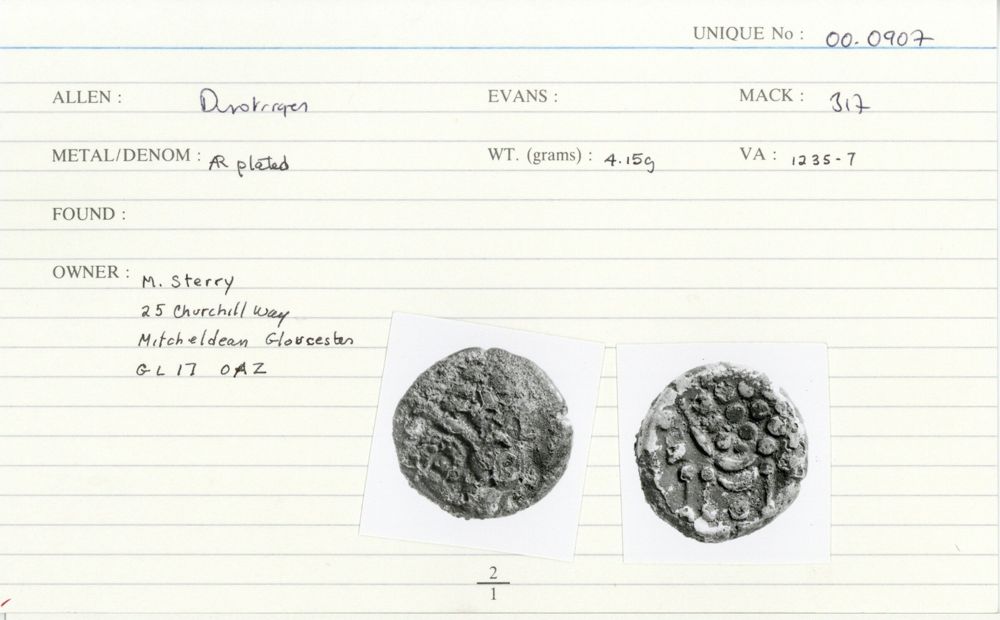 UNIQUE No : 00.0907
ALLEN : Durotriges EVANS : MACK : 317
METAL/DENOM : AR plated WT. (grams) : 4.15g VA : 1235-7
FOUND :
OWNER : M. Sterry
25 Churchill Way
Mitcheldean Gloucester
GL17 0AZ
2
1